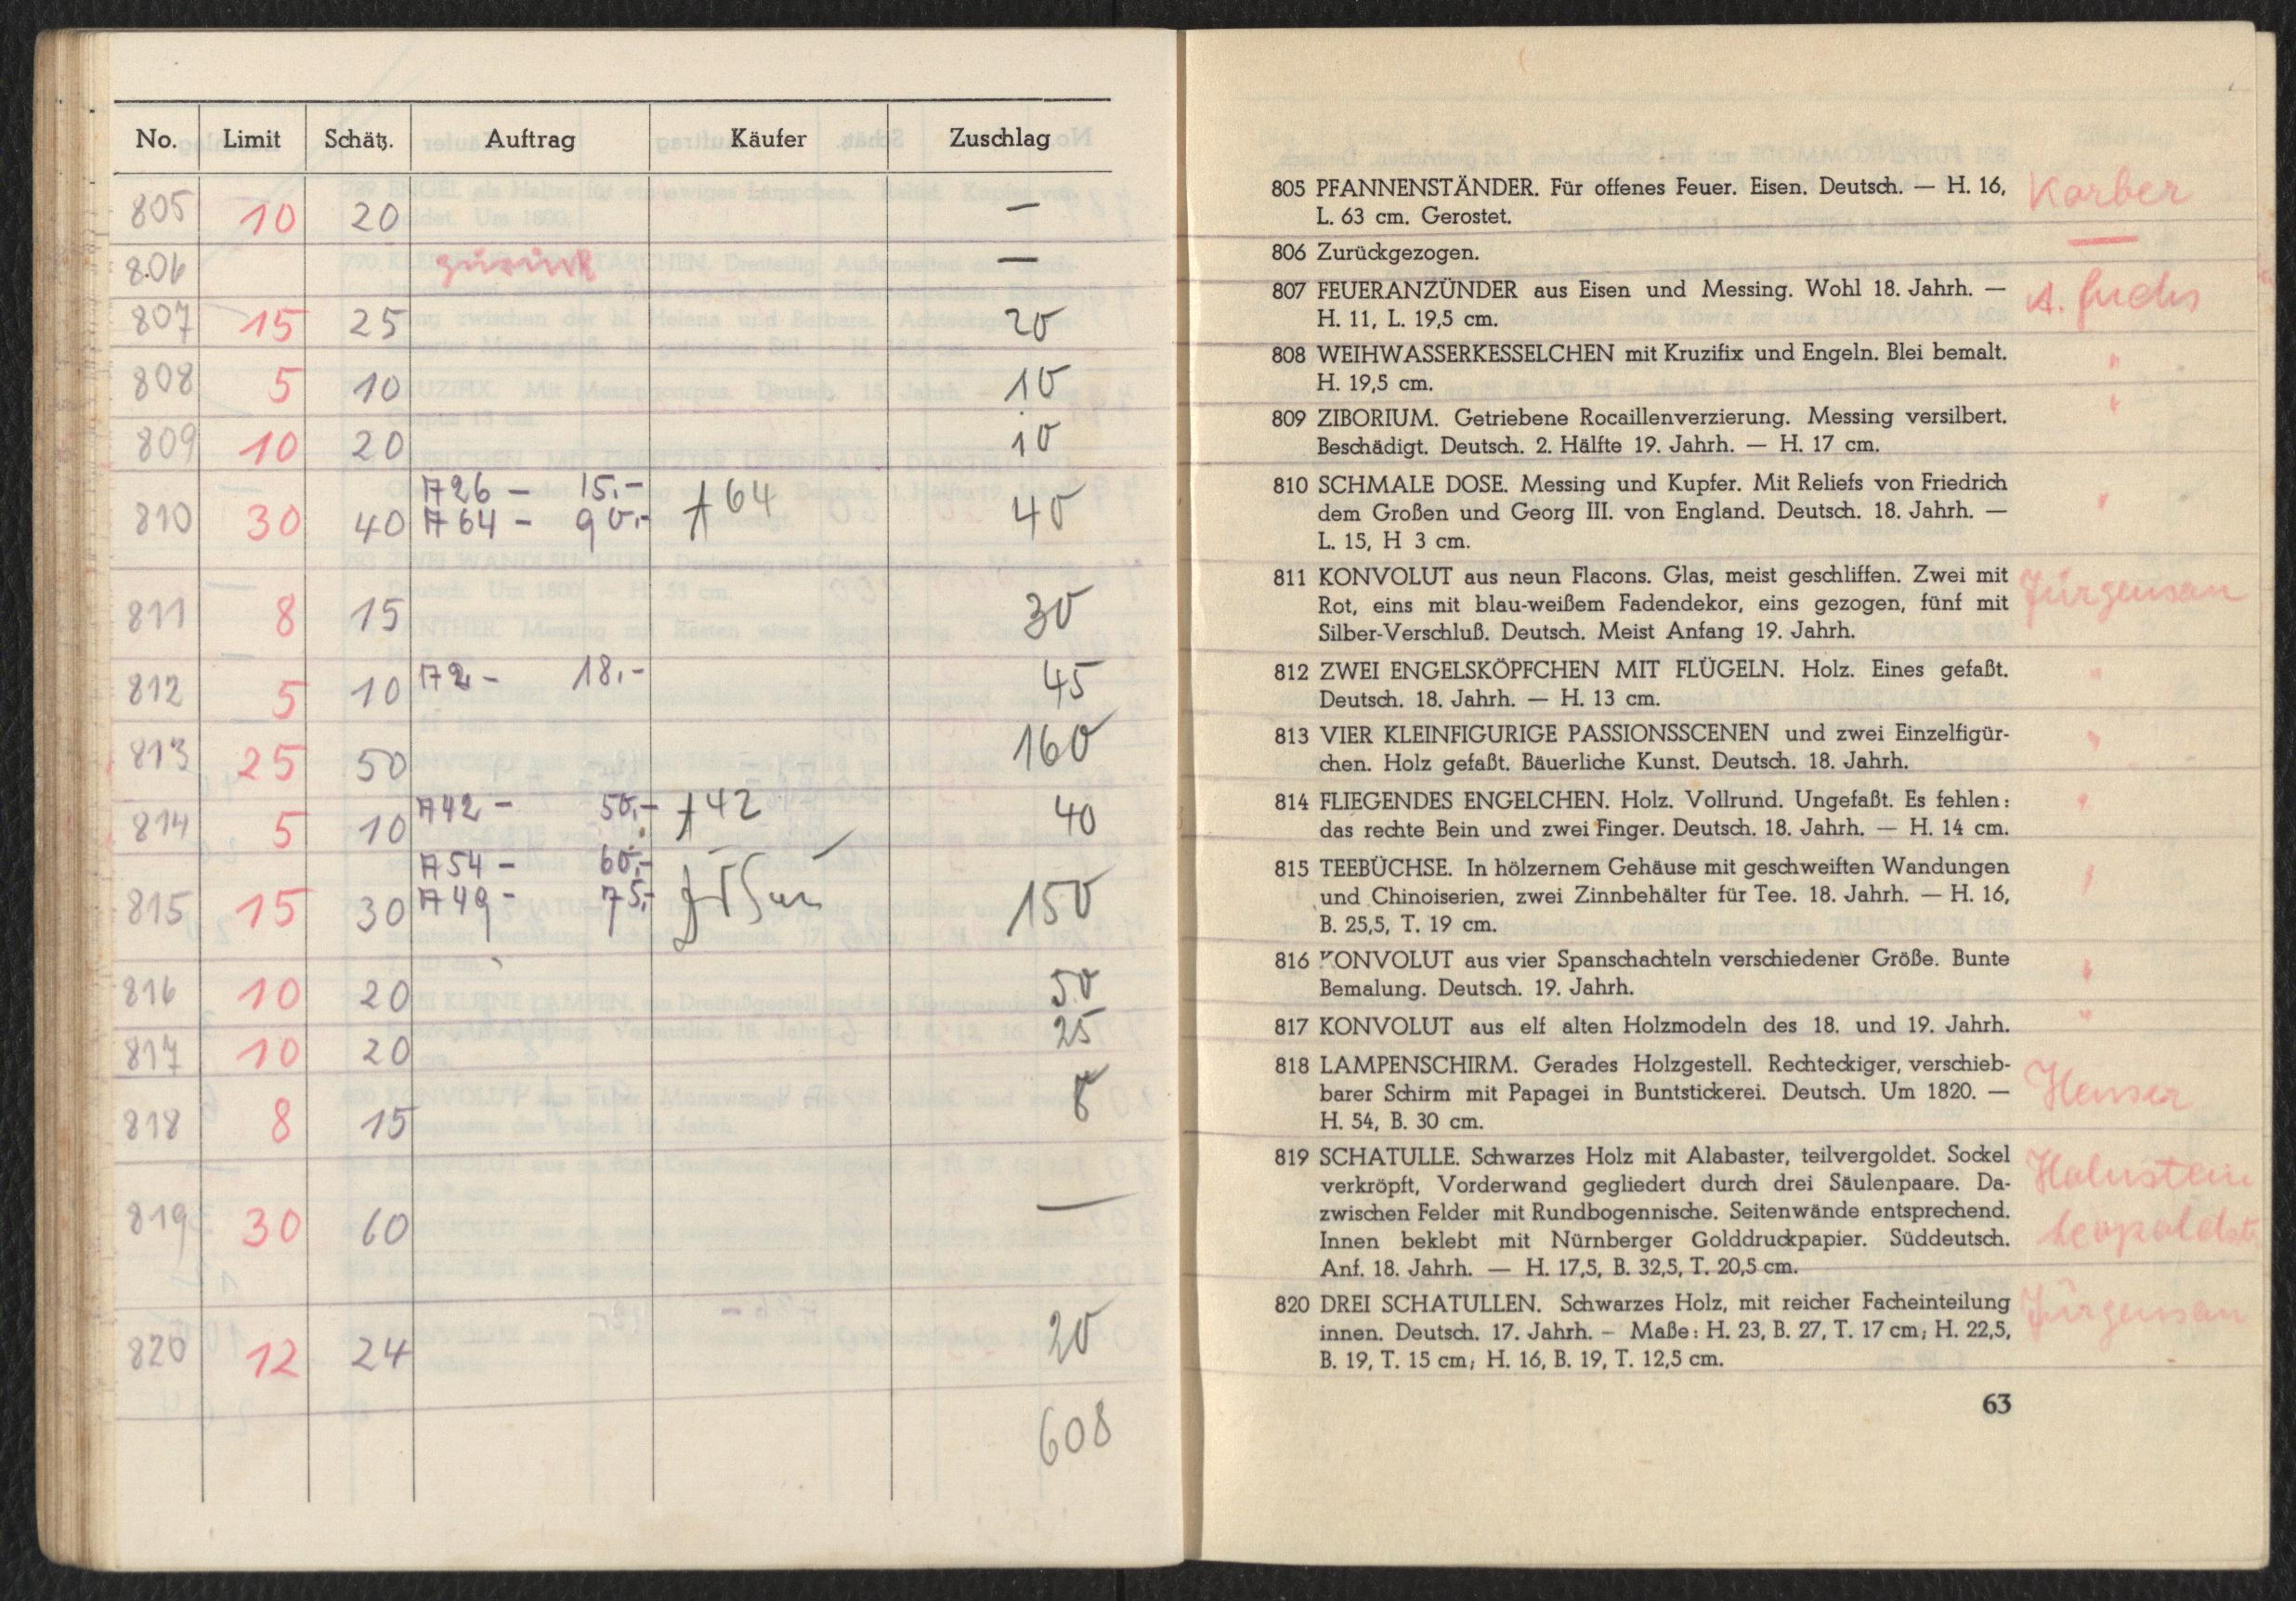 No. Limit Schätz. Auftrag Käufer Zuschlag
805 10 20 —
806 zurück —
807 15 25 20
808 5 10 10
809 10 20 10
A 26 – 15.–
810 30 40 A 64 – 90.– A 64 40
811 8 15 30
812 5 10 A 2 – 18.– 45
813 25 50 160
814 5 10 A 42 – 50.– A 42 40
A 54 – 60.–
815 15 30 A 49 – 75.– 150
816 10 20 50
817 10 20 25
818 8 15 8
819 30 60 —
820 12 24 20
608
805 PFANNENSTÄNDER. Für offenes Feuer. Eisen. Deutsch. — H. 16, Korber
L. 63 cm. Gerostet.
806 Zurückgezogen. —
807 FEUERANZÜNDER aus Eisen und Messing. Wohl 18. Jahrh. — A. Fuchs
H. 11, L. 19,5 cm.
808 WEIHWASSERKESSELCHEN mit Kruzifix und Engeln. Blei bemalt. "
H. 19,5 cm.
809 ZIBORIUM. Getriebene Rocaillenverzierung. Messing versilbert. "
Beschädigt. Deutsch. 2. Hälfte 19. Jahrh. — H. 17 cm.
810 SCHMALE DOSE. Messing und Kupfer. Mit Reliefs von Friedrich "
dem Großen und Georg III. von England. Deutsch. 18. Jahrh. —
L. 15, H 3 cm.
811 KONVOLUT aus neun Flacons. Glas, meist geschliffen. Zwei mit Jürgensen
Rot, eins mit blau-weißem Fadendekor, eins gezogen, fünf mit
Silber-Verschluß. Deutsch. Meist Anfang 19. Jahrh.
812 ZWEI ENGELSKÖPFCHEN MIT FLÜGELN. Holz. Eines gefaßt. "
Deutsch. 18. Jahrh. — H. 13 cm.
813 VIER KLEINFIGURIGE PASSIONSSCENEN und zwei Einzelfigür- "
chen. Holz gefaßt. Bäuerliche Kunst. Deutsch. 18. Jahrh.
814 FLIEGENDES ENGELCHEN. Holz. Vollrund. Ungefaßt. Es fehlen: "
das rechte Bein und zwei Finger. Deutsch. 18. Jahrh. — H. 14 cm.
815 TEEBÜCHSE. In hölzernem Gehäuse mit geschweiften Wandungen "
und Chinoiserien, zwei Zinnbehälter für Tee. 18. Jahrh. — H. 16,
B. 25,5, T. 19 cm.
816 KONVOLUT aus vier Spanschachteln verschiedener Größe. Bunte "
Bemalung. Deutsch. 19. Jahrh.
817 KONVOLUT aus elf alten Holzmodeln des 18. und 19. Jahrh. "
818 LAMPENSCHIRM. Gerades Holzgestell. Rechteckiger, verschieb-
barer Schirm mit Papagei in Buntstickerei. Deutsch. Um 1820. —
H. 54, B. 30 cm.
819 SCHATULLE. Schwarzes Holz mit Alabaster, teilvergoldet. Sockel
verkröpft, Vorderwand gegliedert durch drei Säulenpaare. Da-
zwischen Felder mit Rundbogennische. Seitenwände entsprechend.
Innen beklebt mit Nürnberger Golddruckpapier. Süddeutsch. Leopoldst
Anf. 18. Jahrh. — H. 17,5, B. 32,5, T. 20,5 cm.
820 DREI SCHATULLEN. Schwarzes Holz, mit reicher Facheinteilung Jürgensen
innen. Deutsch. 17. Jahrh. – Maße: H. 23, B. 27, T. 17 cm; H. 22,5,
B. 19, T. 15 cm; H. 16, B. 19, T. 12,5 cm.
63